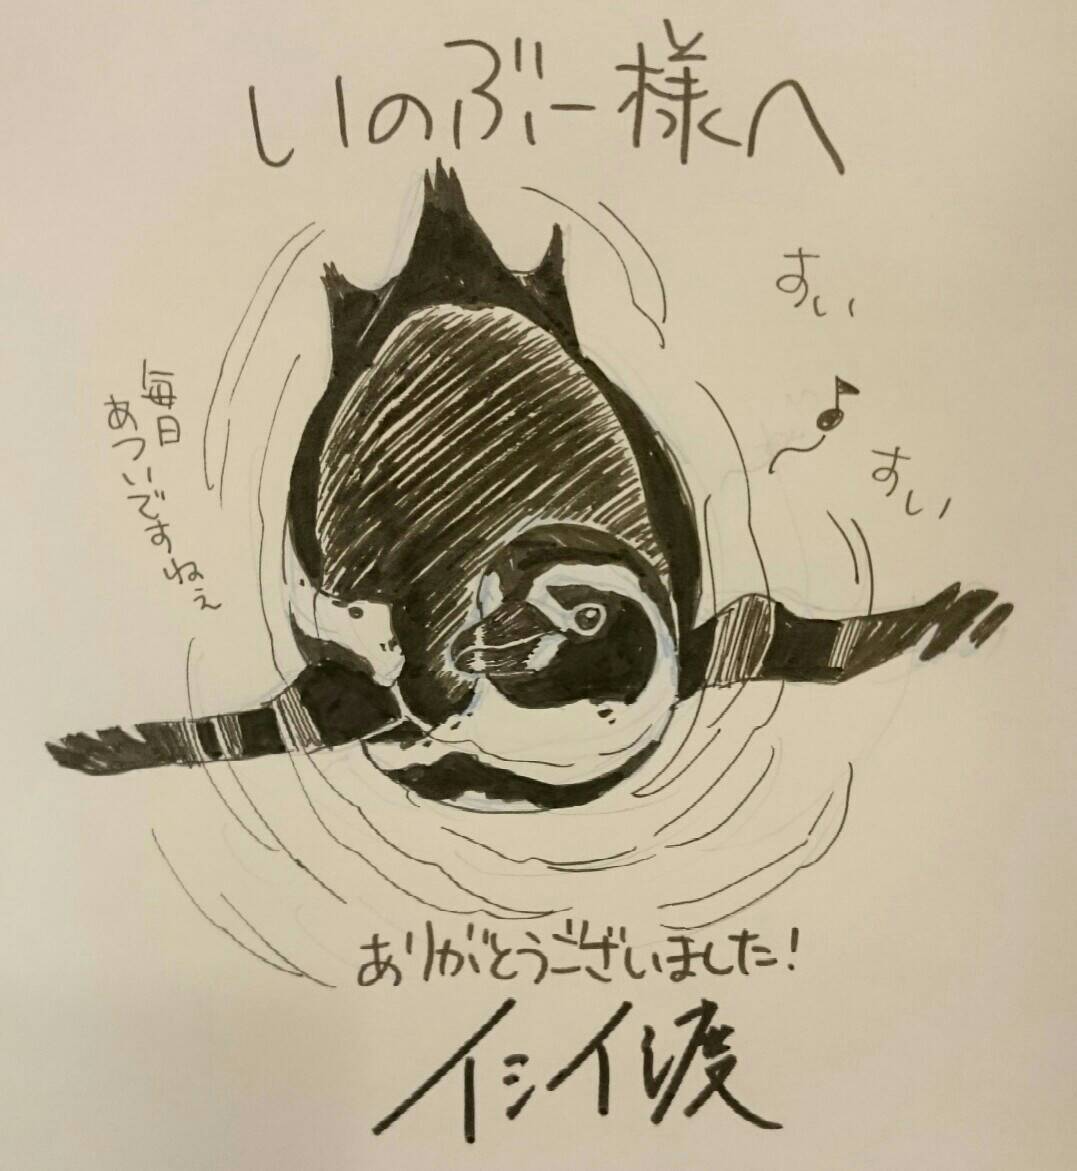 いのぶー様へ
すい
～♪
すい
毎日
あついですねぇ
ありがとうございました!
イシイ渡